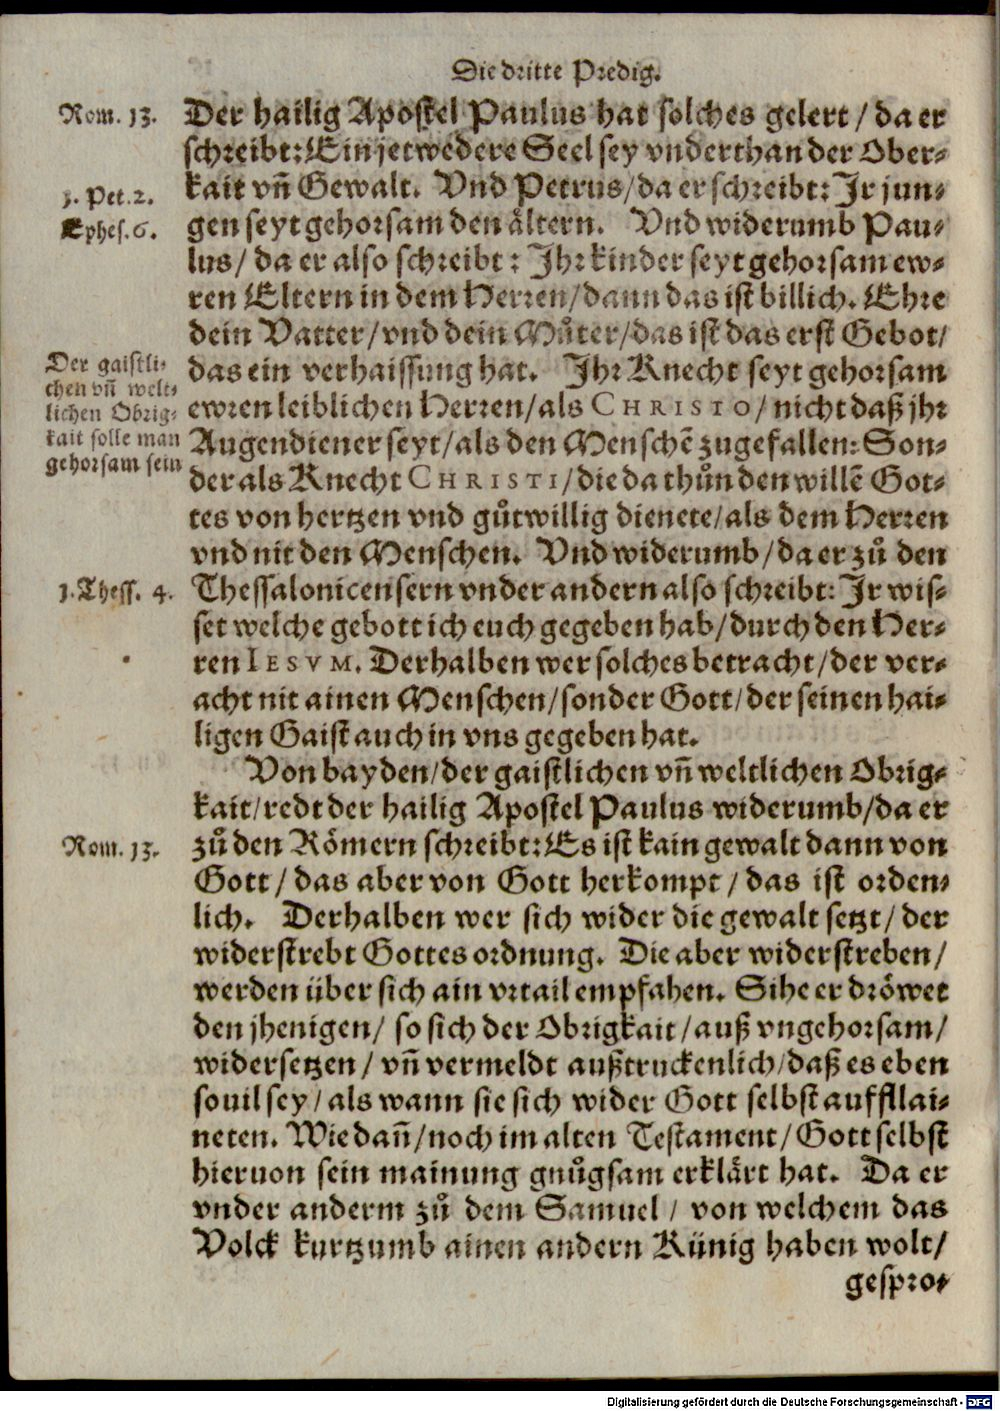 Die dritte Predig.
Rom. 13.
Der hailig Apostel Paulus hat solches gelert / da er
schreibt: Ein jetwedere Seel sey vnderthan der Ober-
kait vñ Gewalt. Vnd Petrus / da er schreibt: Ir jun-
1. Pet. 2.
gen seyt gehorsam den åltern. Vnd widerumb Pau-
Ephes. 6.
lus / da er also schreibt: Ihr kinder seyt gehorsam ew-
ren Eltern in dem Herren / dann das ist billich. Ehre
dein Vatter / vnd dein Můter / das ist das erst Gebot /
das ein verhaissung hat. Ihr Knecht seyt gehorsam
ewren leiblichen Herren / als CHRISTO / nicht daß jhr
Augendiener seyt / als den Menschẽ zugefallen: Son-
der als Knecht CHRISTI / die da thůn den willẽ Got-
tes von hertzen vnd gůtwillig dienete / als dem Herren
vnd nit den Menschen. Vnd widerumb / da er zů den
Der gaistli-
chen vñ welt-
lichen Obrig-
kait solle man
gehorsam sein
1. Thess. 4.
Thessalonicensern vnder andern also schreibt: Ir wis-
set welche gebott ich euch gegeben hab / durch den Her-
ren IESVM. Derhalben wer solches betracht / der ver-
acht nit ainen Menschen / sonder Gott / der seinen hai-
ligen Gaist auch in vns gegeben hat.
Von bayden / der gaistlichen vñ weltlichen Obrig-
kait / redt der hailig Apostel Paulus widerumb / da er
Rom. 13.
zů den Römern schreibt: Es ist kain gewalt dann von
Gott / das aber von Gott herkompt / das ist orden-
lich. Derhalben wer sich wider die gewalt setzt / der
widerstrebt Gottes ordnung. Die aber widerstreben /
werden über sich ain vrtail empfahen. Sihe er dröwet
den jhenigen / so sich der Obrigkait / auß vngehorsam /
widersetzen / vñ vermeldt außtruckenlich / daß es eben
souil sey / als wann sie sich wider Gott selbst auffllai-
neten. Wie dañ / noch im alten Testament / Gott selbst
hieruon sein mainung gnůgsam erklårt hat. Da er
vnder anderm zů dem Samuel / von welchem das
Volck kurtzumb ainen andern Künig haben wolt /
gespro-
Digitalisierung gefördert durch die Deutsche Forschungsgemeinschaft - DFG